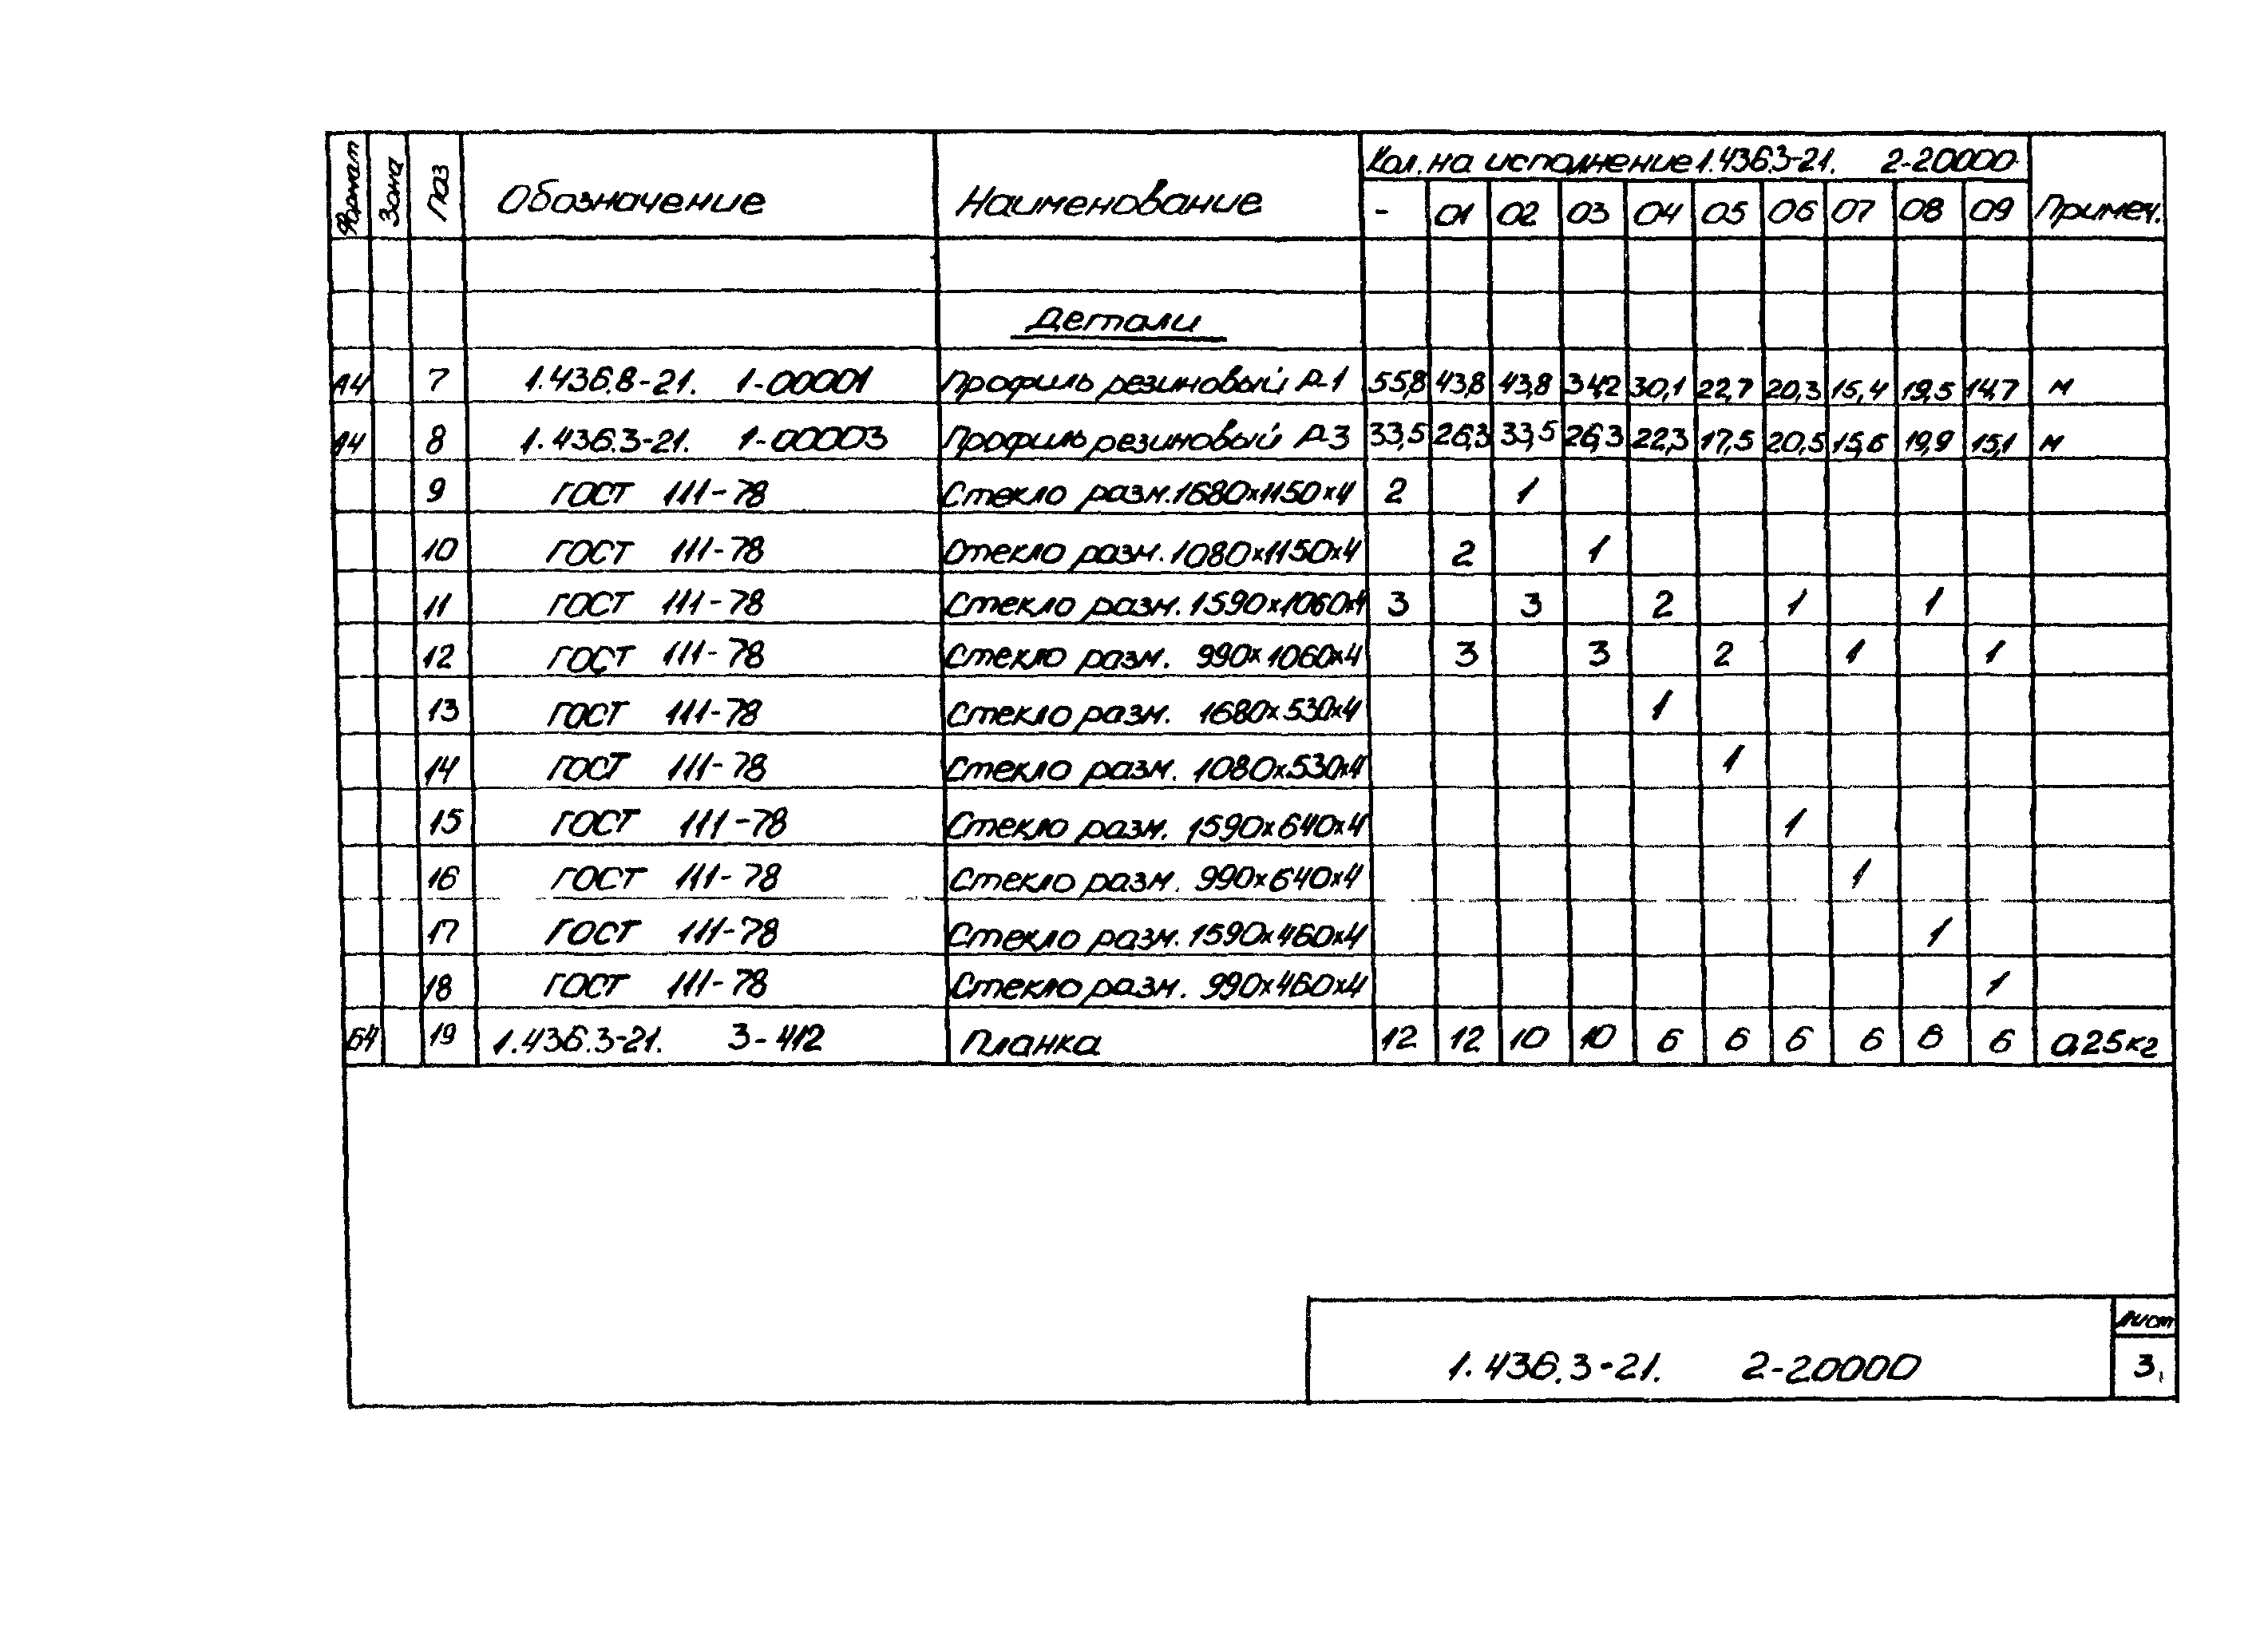 Формат Зона Поз Обозначение Наименование Кол. на исполнение 1.436.3-21. 2-20000 Примеч.
- 01 02 03 04 05 06 07 08 09
Детали
А4 7 1.436.8-21. 1-00001 Профиль резиновый Р-1 55,8 43,8 43,8 34,2 30,1 22,7 20,3 15,4 19,5 14,7 м
А4 8 1.436.3-21. 1-00003 Профиль резиновый Р-3 33,5 26,3 33,5 26,3 22,3 17,5 20,5 15,6 19,9 15,1 м
9 ГОСТ 111-78 Стекло разм. 1680х1150х4 2 1
10 ГОСТ 111-78 Стекло разм. 1080х1150х4 2 1
11 ГОСТ 111-78 Стекло разм. 1590х1060х4 3 3 2 1 1
12 ГОСТ 111-78 Стекло разм. 990х1060х4 3 3 2 1 1
13 ГОСТ 111-78 Стекло разм. 1680х530х4 1
14 ГОСТ 111-78 Стекло разм. 1080х530х4 1
15 ГОСТ 111-78 Стекло разм. 1590х640х4 1
16 ГОСТ 111-78 Стекло разм. 990х640х4 1
17 ГОСТ 111-78 Стекло разм. 1590х460х4 1
18 ГОСТ 111-78 Стекло разм. 990х460х4 1
Б4 19 1.436.3-21. 3-412 Планка 12 12 10 10 6 6 6 6 6 6 0,25кг
Лист
1.436.3-21. 2-20000 3